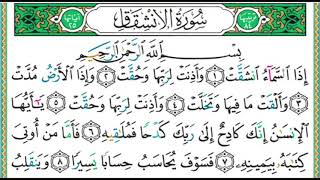 سُورَةُ الْاِنْشِقَاقِ
بِسْمِ اللّٰهِ الرَّحْمٰنِ الرَّحِيْمِ
اِذَا السَّمَآءُ انْشَقَّتْ ۝١ وَاَذِنَتْ لِرَبِّهَا وَحُقَّتْ ۝٢ وَاِذَا الْاَرْضُ مُدَّتْ
۝٣ وَاَلْقَتْ مَا فِيْهَا وَتَخَلَّتْ ۝٤ وَاَذِنَتْ لِرَبِّهَا وَحُقَّتْ ۝٥ يٰٓاَيُّهَا
الْاِنْسَانُ اِنَّكَ كَادِحٌ اِلٰى رَبِّكَ كَدْحًا فَمُلٰقِيْهِ ۝٦ فَاَمَّا مَنْ اُوْتِيَ
كِتٰبَهٗ بِيَمِيْنِهٖ ۝٧ فَسَوْفَ يُحَاسَبُ حِسَابًا يَسِيْرًا ۝٨ وَيَنْقَلِبُ